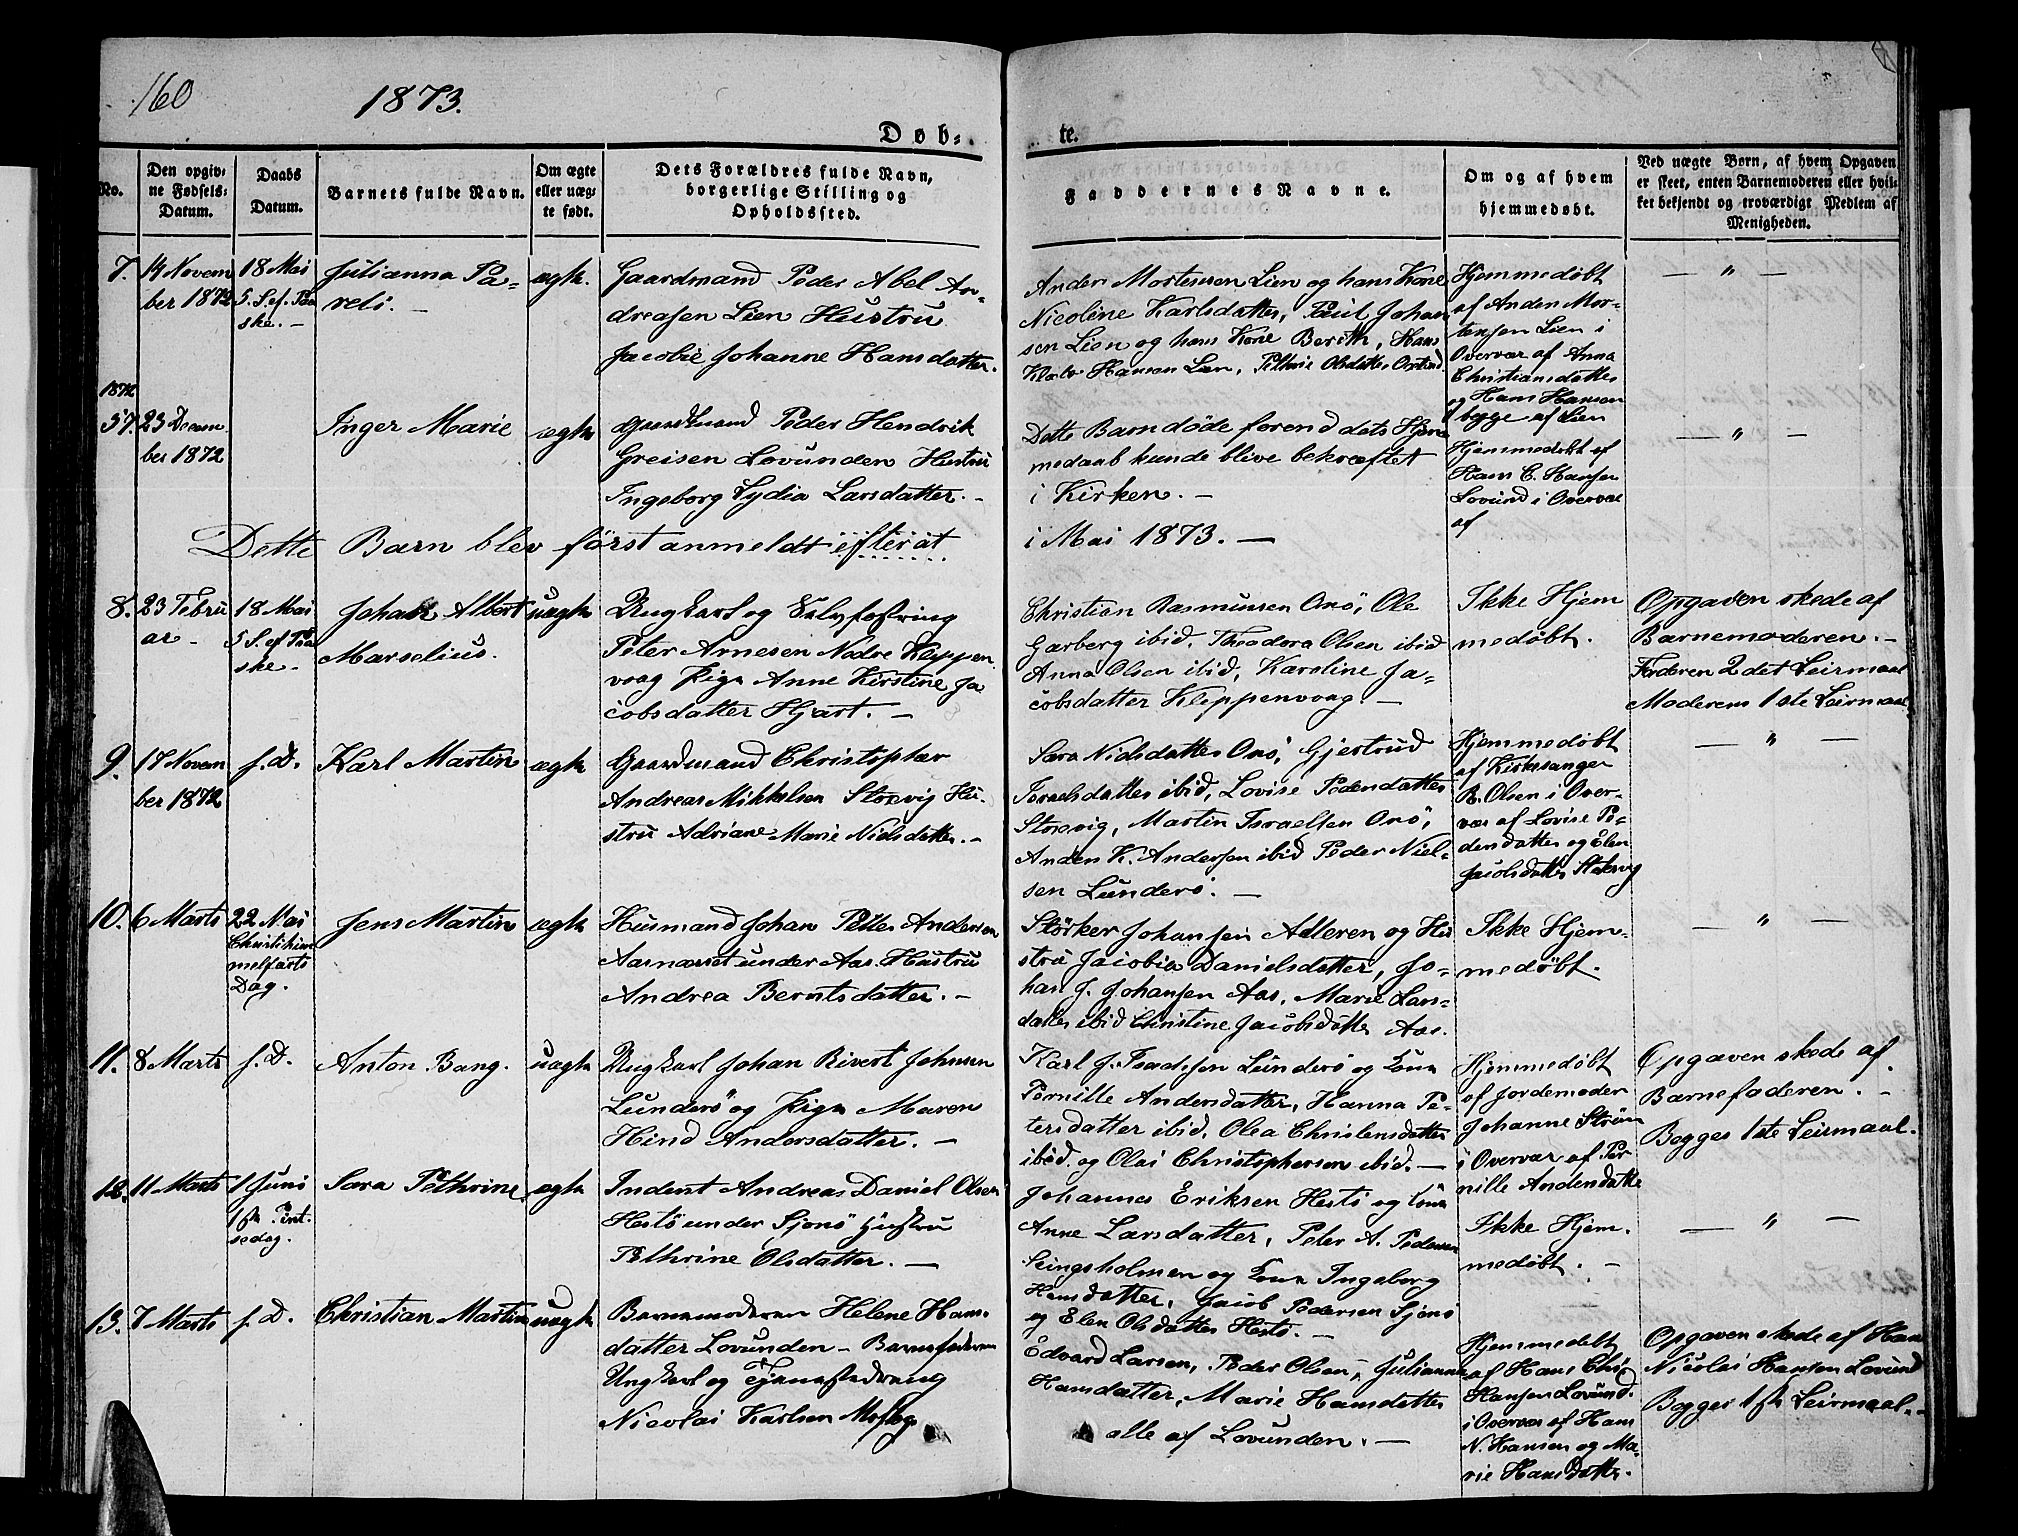 160
1873.
Døb-
te.
No.
Den opgiv-
ne Fødsels-
Datum.
Daabs
Datum.
Barnets fulde Navn.
Om ægte
eller uæg-
te født.
Dets Forældres fulde Navn,
borgerlige Stilling og
Opholdssted.
Faddernes Navne.
Om og af hvem
hjemmedøbt.
Ved uægte Børn, af hvem Opgaven
er skeet, enten Barnemoderen eller hvil-
ket bekjendt og troværdigt Medlem af
Menigheden.
7.
14 Novem
ber 1872
18 Mai
5. S. ef. Paa
ske. -
Julianna Pa-
relö. -
ægte.
Gaardmand Peder Abel An-
dreasen Lien Hustru
Jacobie Johanne Hansdatter.
Anders Mortensen Lien og hans Kone
Nicoline Karlsdatter, Paul Johan
sen Lien og hans Kone Berith, Hans
Hansen Lien, Olsdatter
Hjemmedøbt
af Anders Mor-
tensen Lien i
Overvær af Anna
Christiansdatter
og Hans Hansen
begge af Lien
— " —
1872
57.
23 Decem
ber 1872
Inger Marie
ægte
Gaardmand Peder Hendrik
Greisen Lovunden Hustru
Ingeborg Lydia Larsdatter. -
Dette Barn døde forend dets Hjem
medaab kunde blive bekræftet
i Kirken. -
Hjemmedøbt af
Hans C. Hansen
Lovund i Overvær
af
— " —
Dette Barn blev først anmeldt efterat
i Mai 1873. —
8.
23 Febru
ar -
18 Mai
5 S. ef Paa
ske. -
Johan Albert
Marselius.
uægte
Ungkarl og Selvfostring
Peter Arnesen Nedre Kleppen
vaag Pige Anne Kirstine Ja
cobsdatter Hjart. -
Christian Rasmussen Onö, Ole
Garberg ibid, Theodora Olsen ibid
Anna Olsen ibid, Karoline Ja-
cobsdatter Kleppenvaag. -
Ikke Hjem
medøbt.
Opgaven skede af
Barnemoderen. -
Faderen 2det Leirmaal
Moderens 1ste Leirmaal.
9.
17 Novem
ber 1872
s. D.
Karl Martin
ægte
Gaardmand Christopher
Andreas Mikkelsen Storvig Hu-
stru Adriane Marie Nielsdatter. -
Sara Nielsdatter Onö, Gjertrud
Israelsdatter ibid, Lovise Pedersdatter
Storvig, Martin Israelsen Onö,
Anders K. Andersen ibid Peder Niel-
sen Lunderö. —
Hjemmedøbt
af Kirkesanger
B. Olsen i Over-
vær af Lovise Pe-
dersdatter og Elen
Jacobsdatter
— " —
10.
6 Marts
22 Mai
Christi him
melfarts
Dag.
Jens Martin
ægte
Husmand Johan Petter Andersen
Aasnæsset under Aas. Hustru
Andrea Berntsdatter. -
Störker Johansen Alteren og Hu
stru Jacobia Danielsdatter, Jo-
han J. Johansen Aas, Marie Lars-
datter ibid Christine Jacobsdatter Aas.
Ikke Hjem-
medøbt.
— " —
11.
8 Marts
s. D.
Anton Bang.
uægte
Ungkarl Johan Rivert Johnsen
Lunderö og Pige Maren
Hind Andersdatter. -
Karl J. Lunderö og Kone
Pernille Andersdatter, Hanna Pe-
tersdatter ibid, Olea Christensdatter
ibid. og Olai Christophersen ibid. -
Hjemmedøbt
af Jordemoder
Johanne Ström
i Overvær af Per
nille Andersdatter
Opgaven skede af
Barnefaderen. -
Begges 1ste Leirmaal.
12.
11 Marts
1 Juni
1ste Pint.
sedag.
Sara Pethrine
ægte
Inderst Andreas Daniel Olsen
Hestö under Sjonö Hustru
Pethrine Olsdatter. —
Johannes Eriksen Hestö og Kone
Anne Larsdatter, Peter A. Pedersen
Seingsholmen og Kone Ingeborg
Hansdatter, Jacob Pedersen Sjonö
og Elen Olsdatter Hestö. -
Ikke Hjem.
medøbt. -
— " —
13.
7 Marts
s. D.
Christian Martin
uægte
Barnemoderen Helene Hans-
datter Lovunden - Barnefaderen
Ungkarl og
Nicolai Karlsen
Edvard Larsen, Peder Olsen, Julianna
Hansdatter, Marie Hansdatter
alle af Lovunden. —
Hjemmedøbt
af Hans Chr.
Hansen Lovund.
i Overvær af Hans
N. Hansen og Ma-
rie Hansdatter.
Opgaven skede af Hans
Nicolai Hansen Lovund
Begges 1ste Leirmaal. -